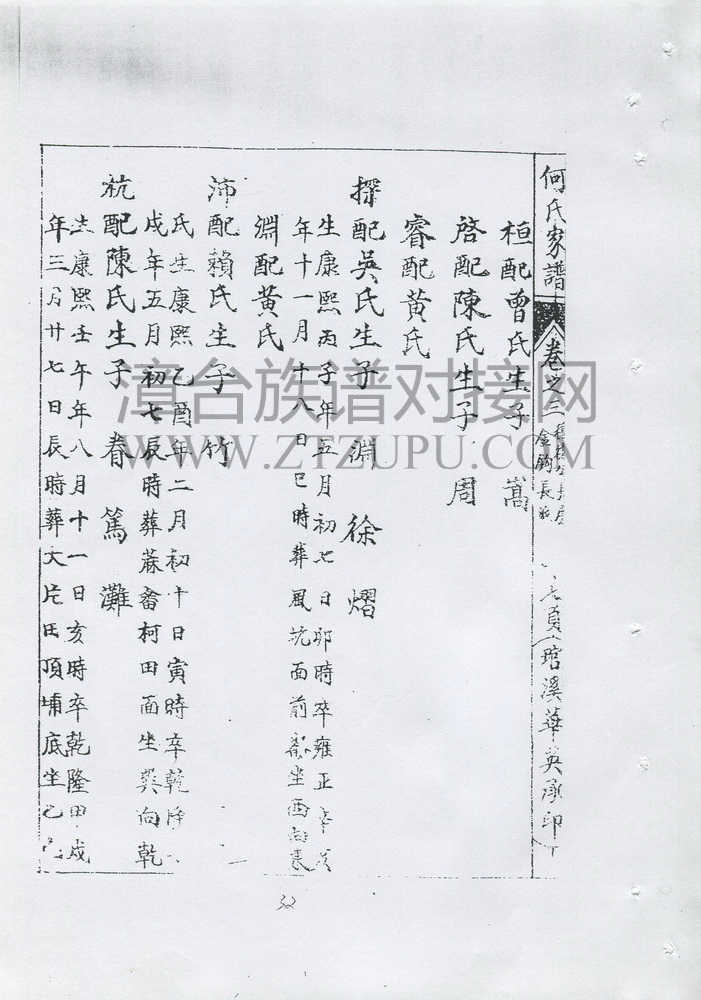 何氏家譜 卷之三 金鈎長 頁 琯溪華英承印
桓配曾氏生子 嵩
啓配陳氏生子 周
睿配黃氏
探配吳氏生子 淵 徐 熠
生康熙丙子年五月初七日卯時卒雍正辛亥
年十一月十八日巳時葬風坑面前 坐酉向
淵配黃氏
沛配賴氏生子 竹
氏生康熙乙酉年二月初十日寅時卒乾隆
戌年五月初七辰時葬蔴畬柯田面坐巽向乾
杭配陳氏生子 春 篤 灘
生康熙壬午年八月十一日亥時卒乾隆甲戌
年三月廿七日辰時葬大片田頂埔底坐
漳台族谱对接网
WWW.ZTZUPU.COM
32